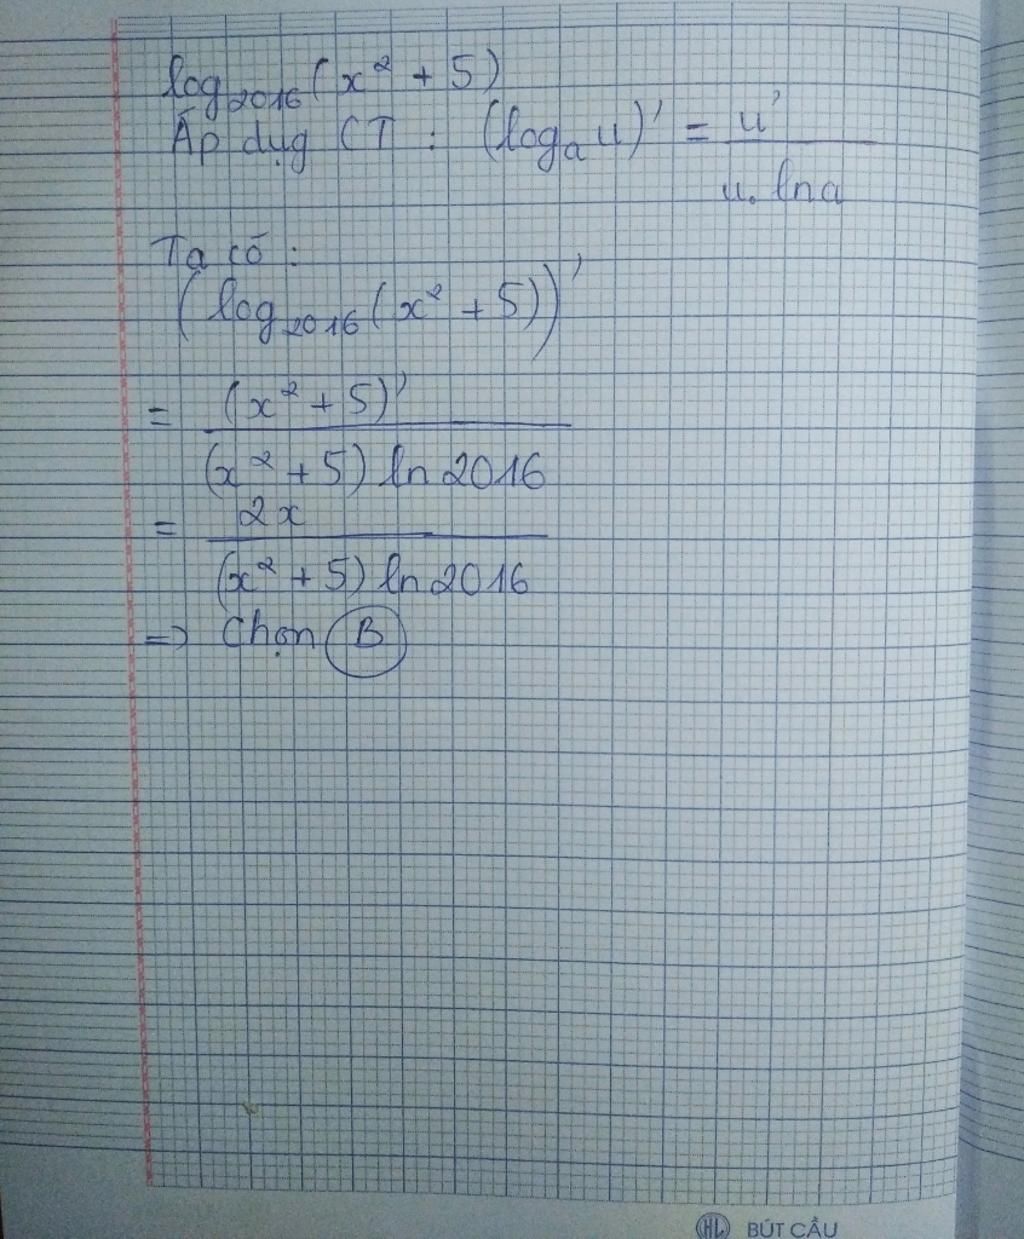 log₂₀₁₆(x² + 5)
Áp dụg CT : (logₐu)' = u' / u. lna
Ta có :
(log₂₀₁₆(x² + 5))'
= (x² + 5)' / (x² + 5) ln 2016
= 2x / (x² + 5) ln 2016
=> Chọn B
HL BÚT CẦU